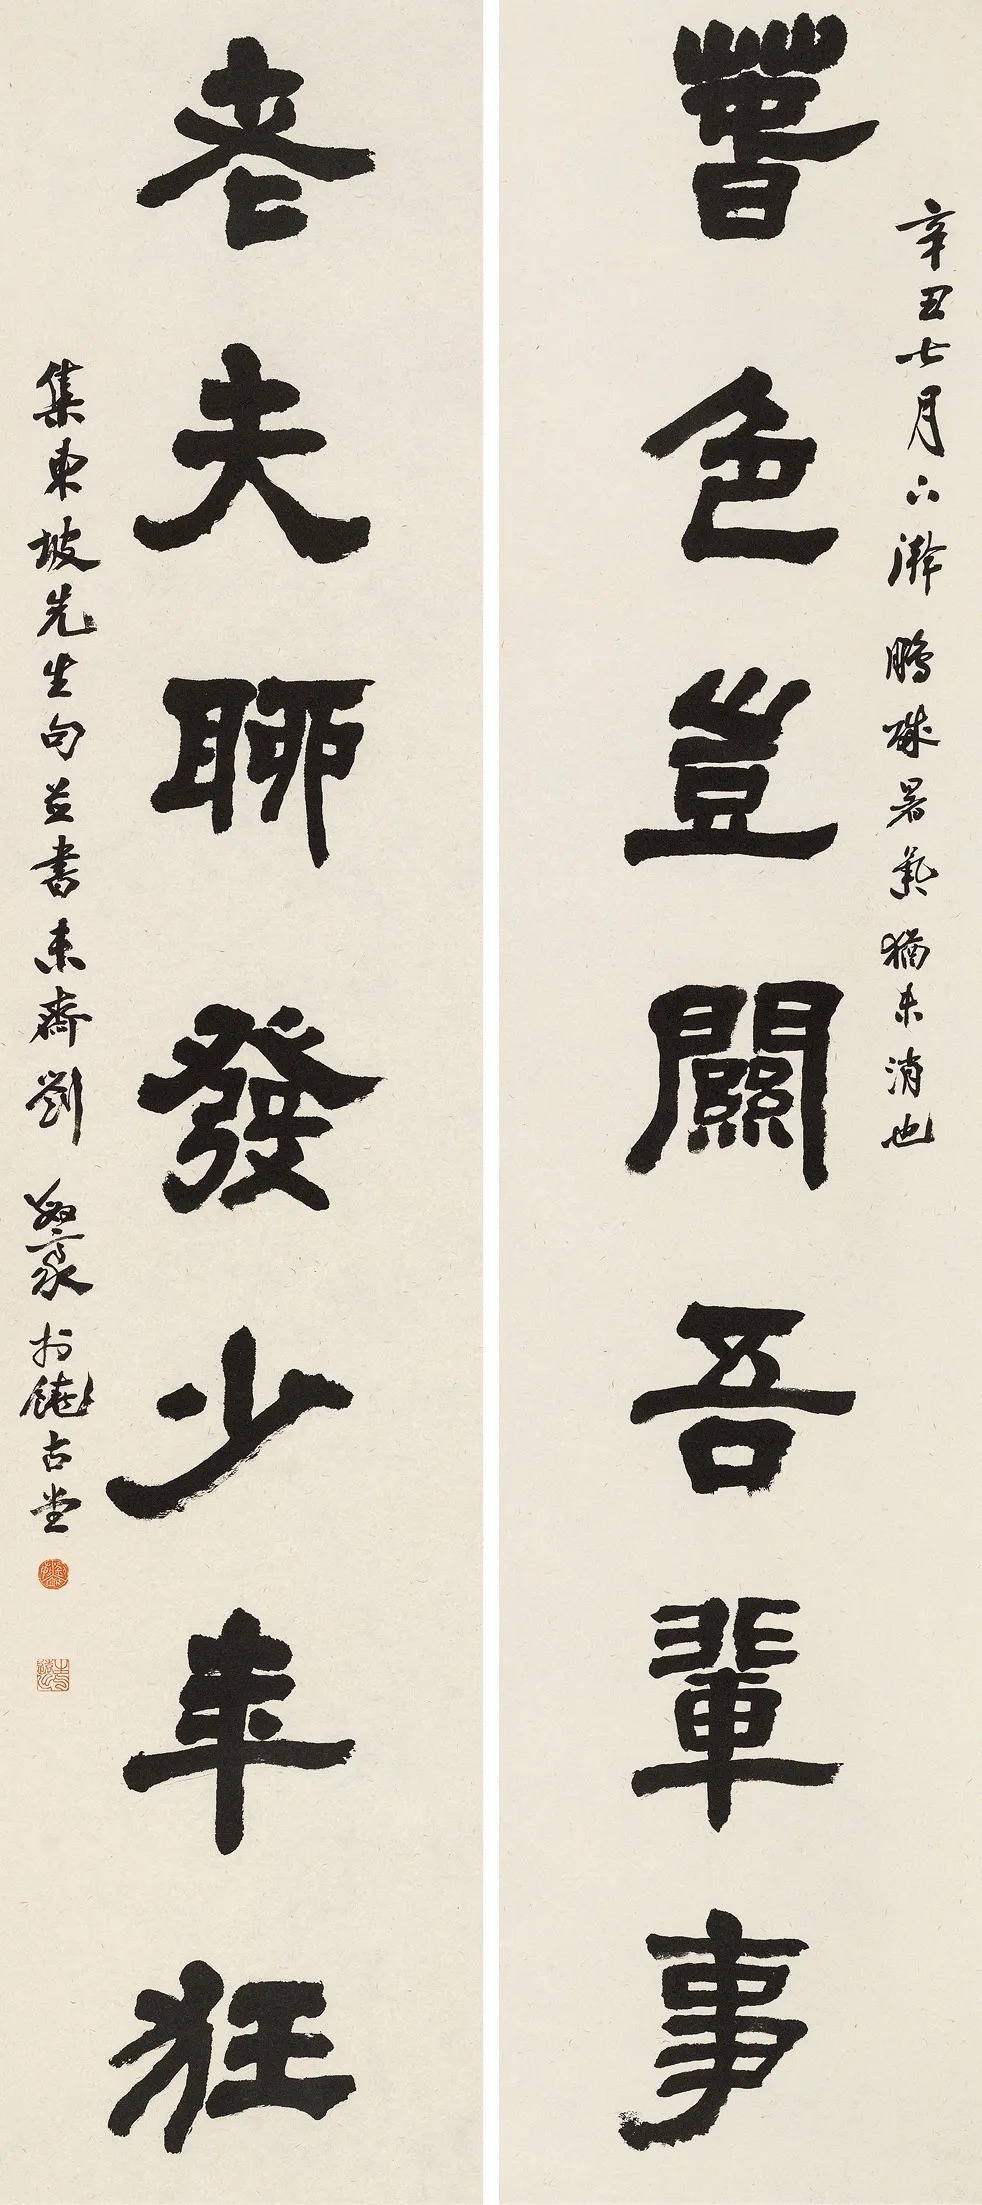 辛丑七月下澣鵬城暑氣猶未消也
春色豈關吾輩事
老夫聊發少年狂
集東坡先生句並書耒齋劉於饒古堂